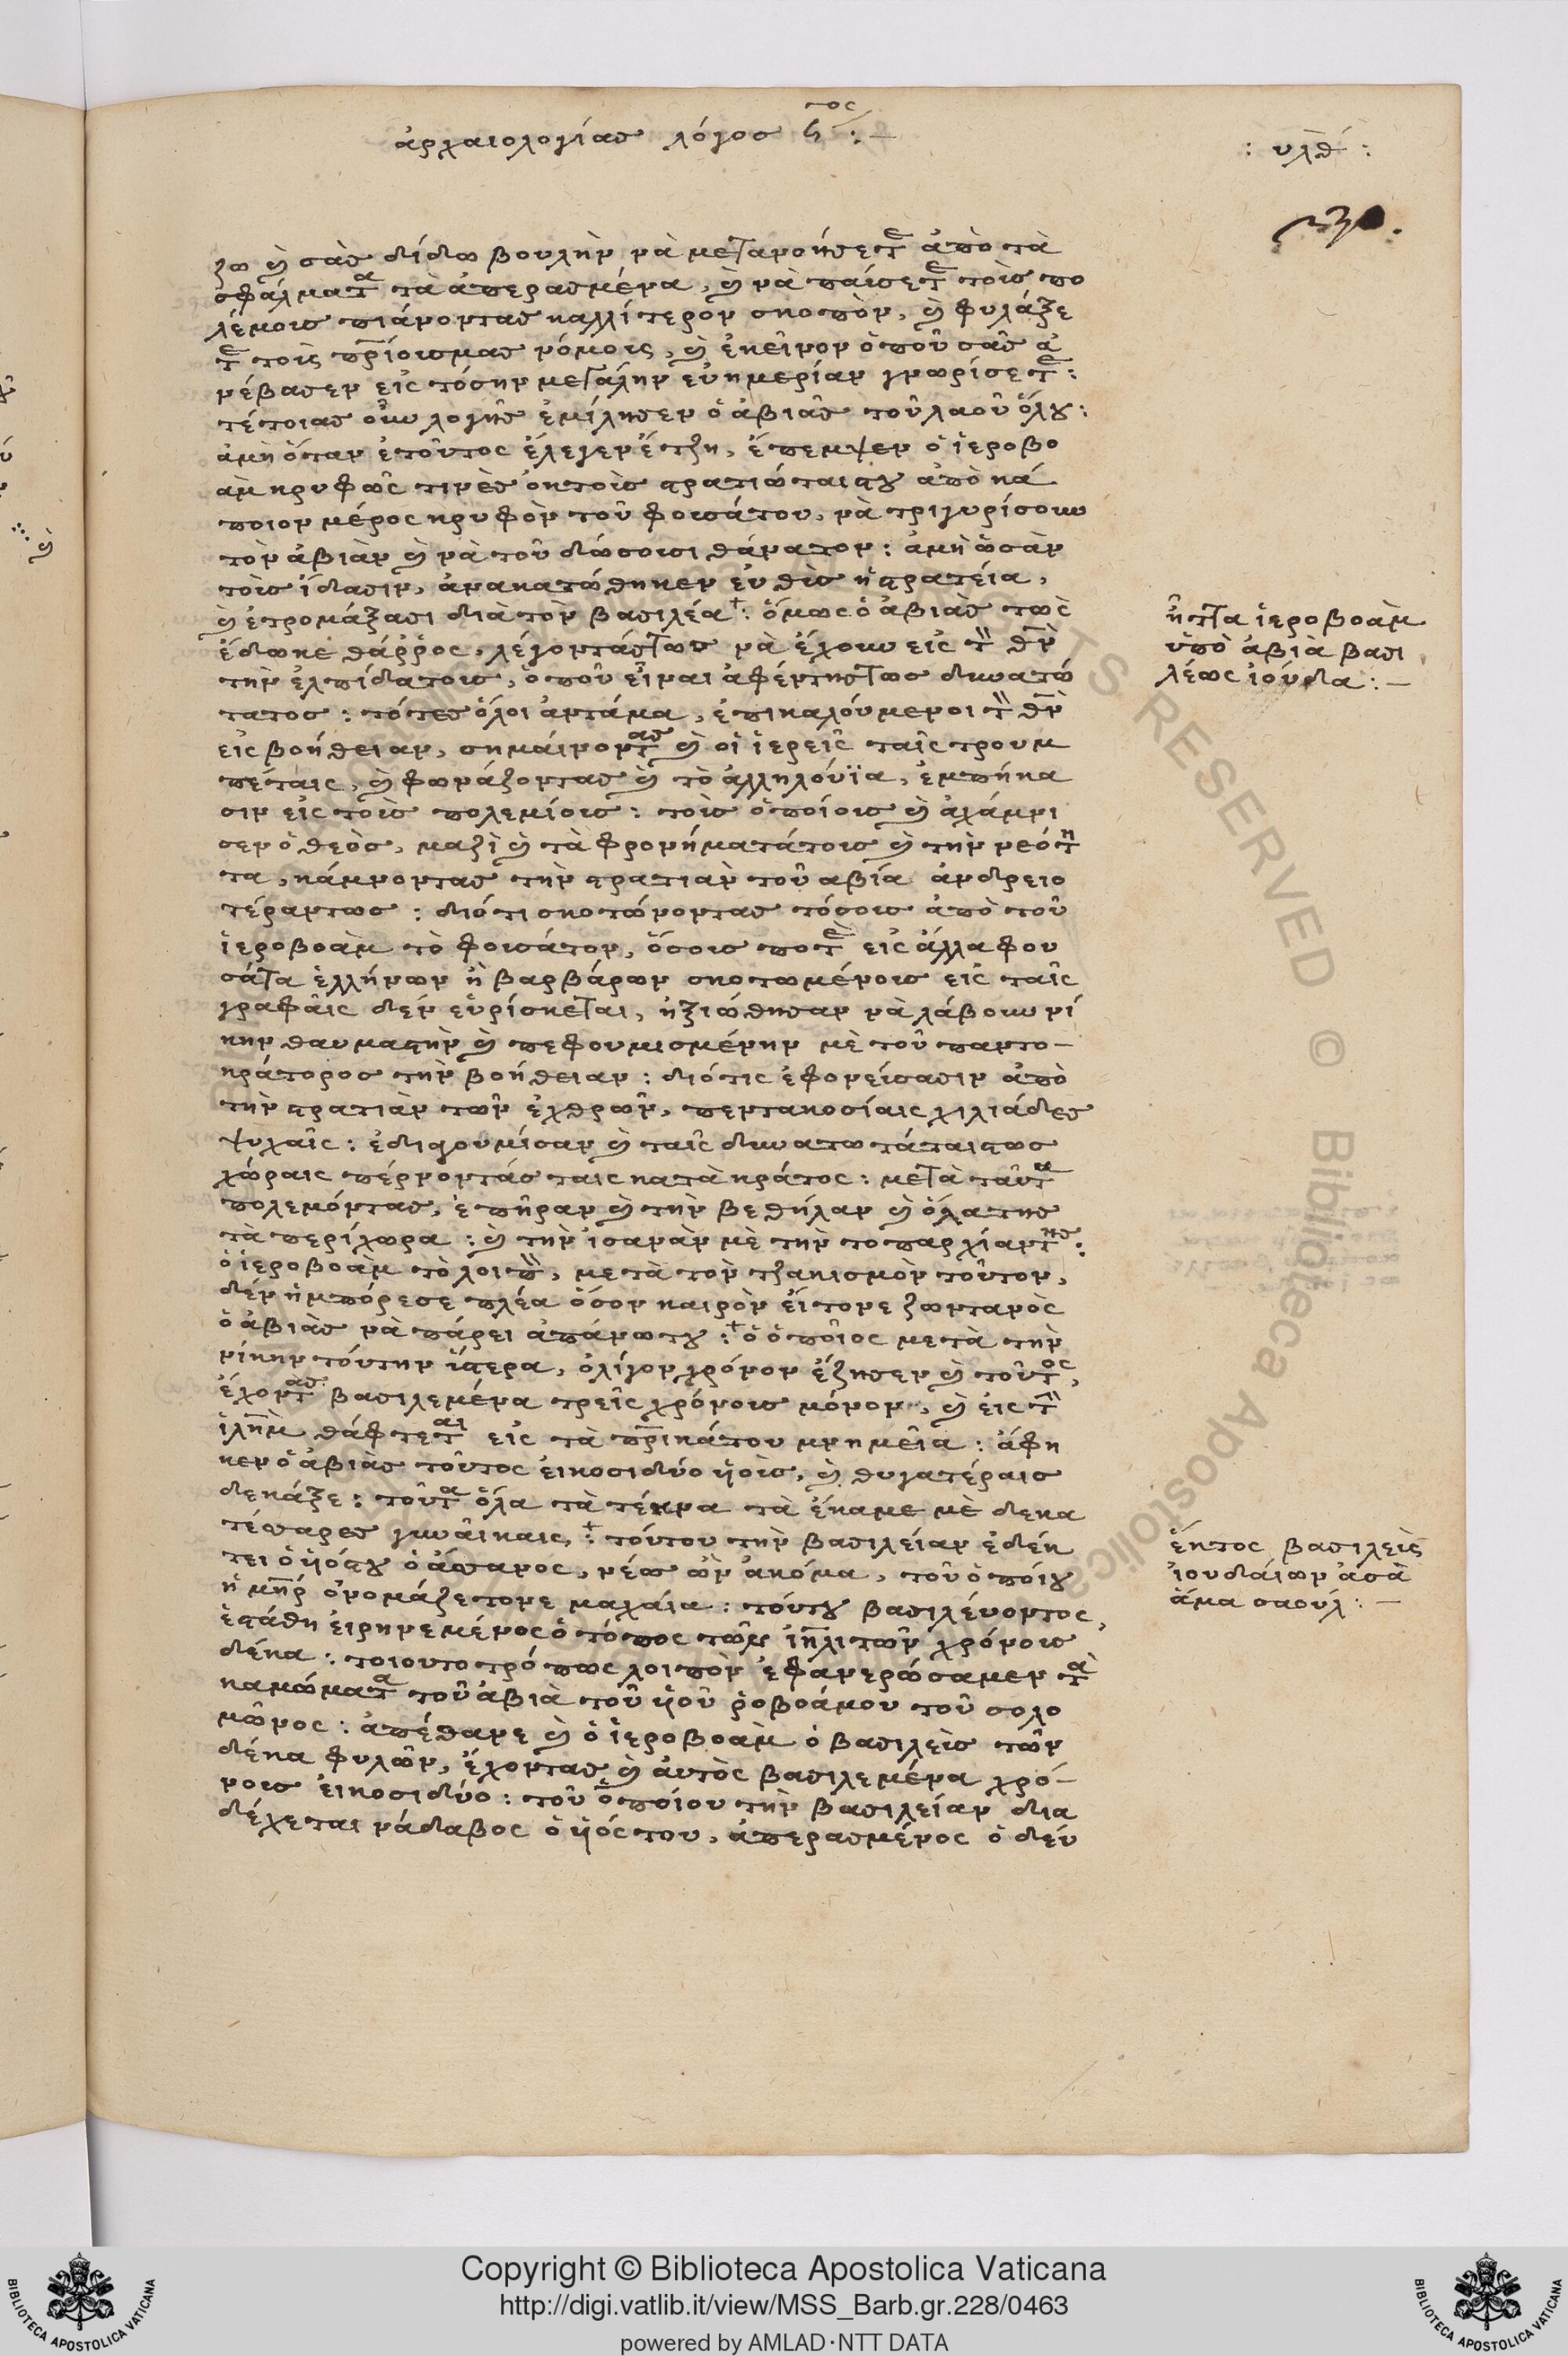 ἀρχαιολογίας λόγος ϛτος :—
: υλθ :
ζω καὶ σᾶς δίδω βουλὴν νὰ μετανοήσετε ἀπὸ τὰ
σφάλματα τὰ ἀπερασμένα, καὶ νὰ παύσετε τοὺς πο
λέμους πιάνοντας καλλίτερον σκοπὸν, καὶ φυλάξε
τε τοὺς πρίους μας νόμους, καὶ ἐκεῖνον ὁποῦ σᾶς ἀ
νέβασεν εἰς τόσην μεγάλην εὐημερίαν γνωρίσετε :
τέτοιας λογῆς ἐμίλησεν ὁ ἀβιὰς τοῦ λαοῦ ὅλου :
ἀμὴ ὅταν ἐτοῦτος ἔλεγεν ἔτζη, ἔπεμψεν ὁ ἱεροβο
ὰμ κρυφῶς τινὲς ἐκ τοὺς στρατιώταις του ἀπὸ κά
ποιον μέρος κρυφὸν τοῦ φουσάτου, νὰ τριγυρίσουν
τὸν ἀβιὰν καὶ νὰ τοῦ δώσουσι θάνατον : ἀμὴ ὡσὰν
τοὺς ἴδασιν, ἀνακατώθηκεν εὐθὺς ἡ στρατεία,
καὶ ἐτρομάξασι διὰ τὸν βασιλέα + : ὅμως ὁ ἀβιὰς τοὺς
ἔδωκε θάρρος, λέγοντάς τους νὰ ἔχουν εἰς τὸν θν
τὴν ἐλπίδα τους, ὁποῦ εἶναι ἀφέντης τους δυνατώ
τατος : τότες ὅλοι ἀντάμα, ἐπικαλούμενοι τὸν θν
εἰς βοήθειαν, σημαίνοντας καὶ οἱ ἱερεῖς ταῖς τρουμ
πέταις, καὶ φωνάζοντας καὶ τὸ ἀλληλούϊα, ἐμπήκα
σιν εἰς τοὺς πολεμίους : τοὺς ὁποίους καὶ ἀχάμνι
σεν ὁ θεὸς, μαζὶ καὶ τὰ φρονήματά τους καὶ τὴν νεότη
τα, κάμνοντας τὴν στρατιὰν τοῦ αβία ἀνδρειο
τέραν τους : διότι σκοτώνοντας τόσους ἀπὸ τοῦ
ἱεροβοὰμ τὸ φουσάτον, ὅσους ποτὲ εἰς ἄλλα φου
σάτα ἑλλήνων ἢ βαρβάρων σκοτωμένους εἰς ταῖς
γραφαῖς δὲν εὑρίσκεται, ἠξιώθησαν νὰ λάβουν νί
κην θαυμαστὴν καὶ πεφουμισμένην μὲ τοῦ παντο—
κράτορος τὴν βοήθειαν : διότις ἐφονεύσασιν ἀπὸ
τὴν στρατιὰν τῶν ἐχθρῶν, πεντακοσίαις χιλιάδες
ψυχαῖς : ἐδιαγουμίσαν καὶ ταῖς δυνατωτάταις τους
χώραις πέρνοντάς ταις κατὰ κράτος : μετὰ ταῦτα
πολεμόντας, ἐπῆραν καὶ τὴν βεθήλαν καὶ ὅλα της
τὰ περίχωρα : καὶ τὴν ἰσανὰν μὲ τὴν τοπαρχίαν της :
ὁ ἱεροβοὰμ τὸ λοιπὸν, μετὰ τὸν τζακισμὸν τοῦτον,
δὲν ἠμπόρεσε πλέα ὅσον καιρὸν εἴτονε ζωντανὸς
ὁ ἀβιὰς νὰ πάρει ἀπάνω του : + ὁ ὁποῖος μετὰ τὴν
νίκην τούτην ὕστερα, ὀλίγον χρόνον ἔζησεν καὶ τοῦτος,
ἔχοντας βασιλεμένα τρεῖς χρόνους μόνον, καὶ εἰς τὴν
ἱλημ θάφτεται εἰς τὰ πρικά του μνημεῖα : ἄφη
κεν ὁ ἀβιὰς τοῦτος εἰκοσιδύο υἱοὺς, καὶ θυγατέραις
δεκάξε : τοῦτα ὅλα τὰ τέκνα τὰ ἔκαμε μὲ δεκα
τέσσαρες γυναίκαις, + : τούτου τὴν βασιλείαν ἐδέχ
τει ὁ υἱός του ὁ ἄσανος, νέος ὢν ἀκόμα, τοῦ ὁποίου
ἡ μηρ ὀνομάζετονε μαχαία : τούτου βασιλεύοντος,
ἐστάθη εἰρηνεμένος ὁ τόπος τῶν ἰηλιτῶν χρόνους
δέκα : τοιουτοτρόπως λοιπὸν ἐφανερώσαμεν τὰ
καμώματα τοῦ ἀβιὰ τοῦ υἱοῦ ῥοβοάμου τοῦ σολο
μῶνος : ἀπέθανε καὶ ὁ ἱεροβοὰμ ὁ βασιλεὺς τῶν
δέκα φυλῶν, ἔχοντας καὶ αὐτὸς βασιλεμένα χρό—
νους εἰκοσιδύο : τοῦ ὁποίου τὴν βασιλείαν δια
δέχεται νάδαβος ὁ υἱός του, ἀπερασμένος ὁ δεύ
ἧττα ἱεροβοὰμ
ὑπὸ ἀβιὰ βασι
λέως ἰούδα :—
ἕκτος βασιλεὺς
ἰουδαίων ἀσὰ
ἅμα σαούλ :—
RIGHTS RESERVED © Biblioteca Apostolica
Copyright © Biblioteca Apostolica Vaticana
http://digi.vatlib.it/view/MSS_Barb.gr.228/0463
powered by AMLAD·NTT DATA
BIBLIOTECA APOSTOLICA VATICANA
BIBLIOTECA APOSTOLICA VATICANA